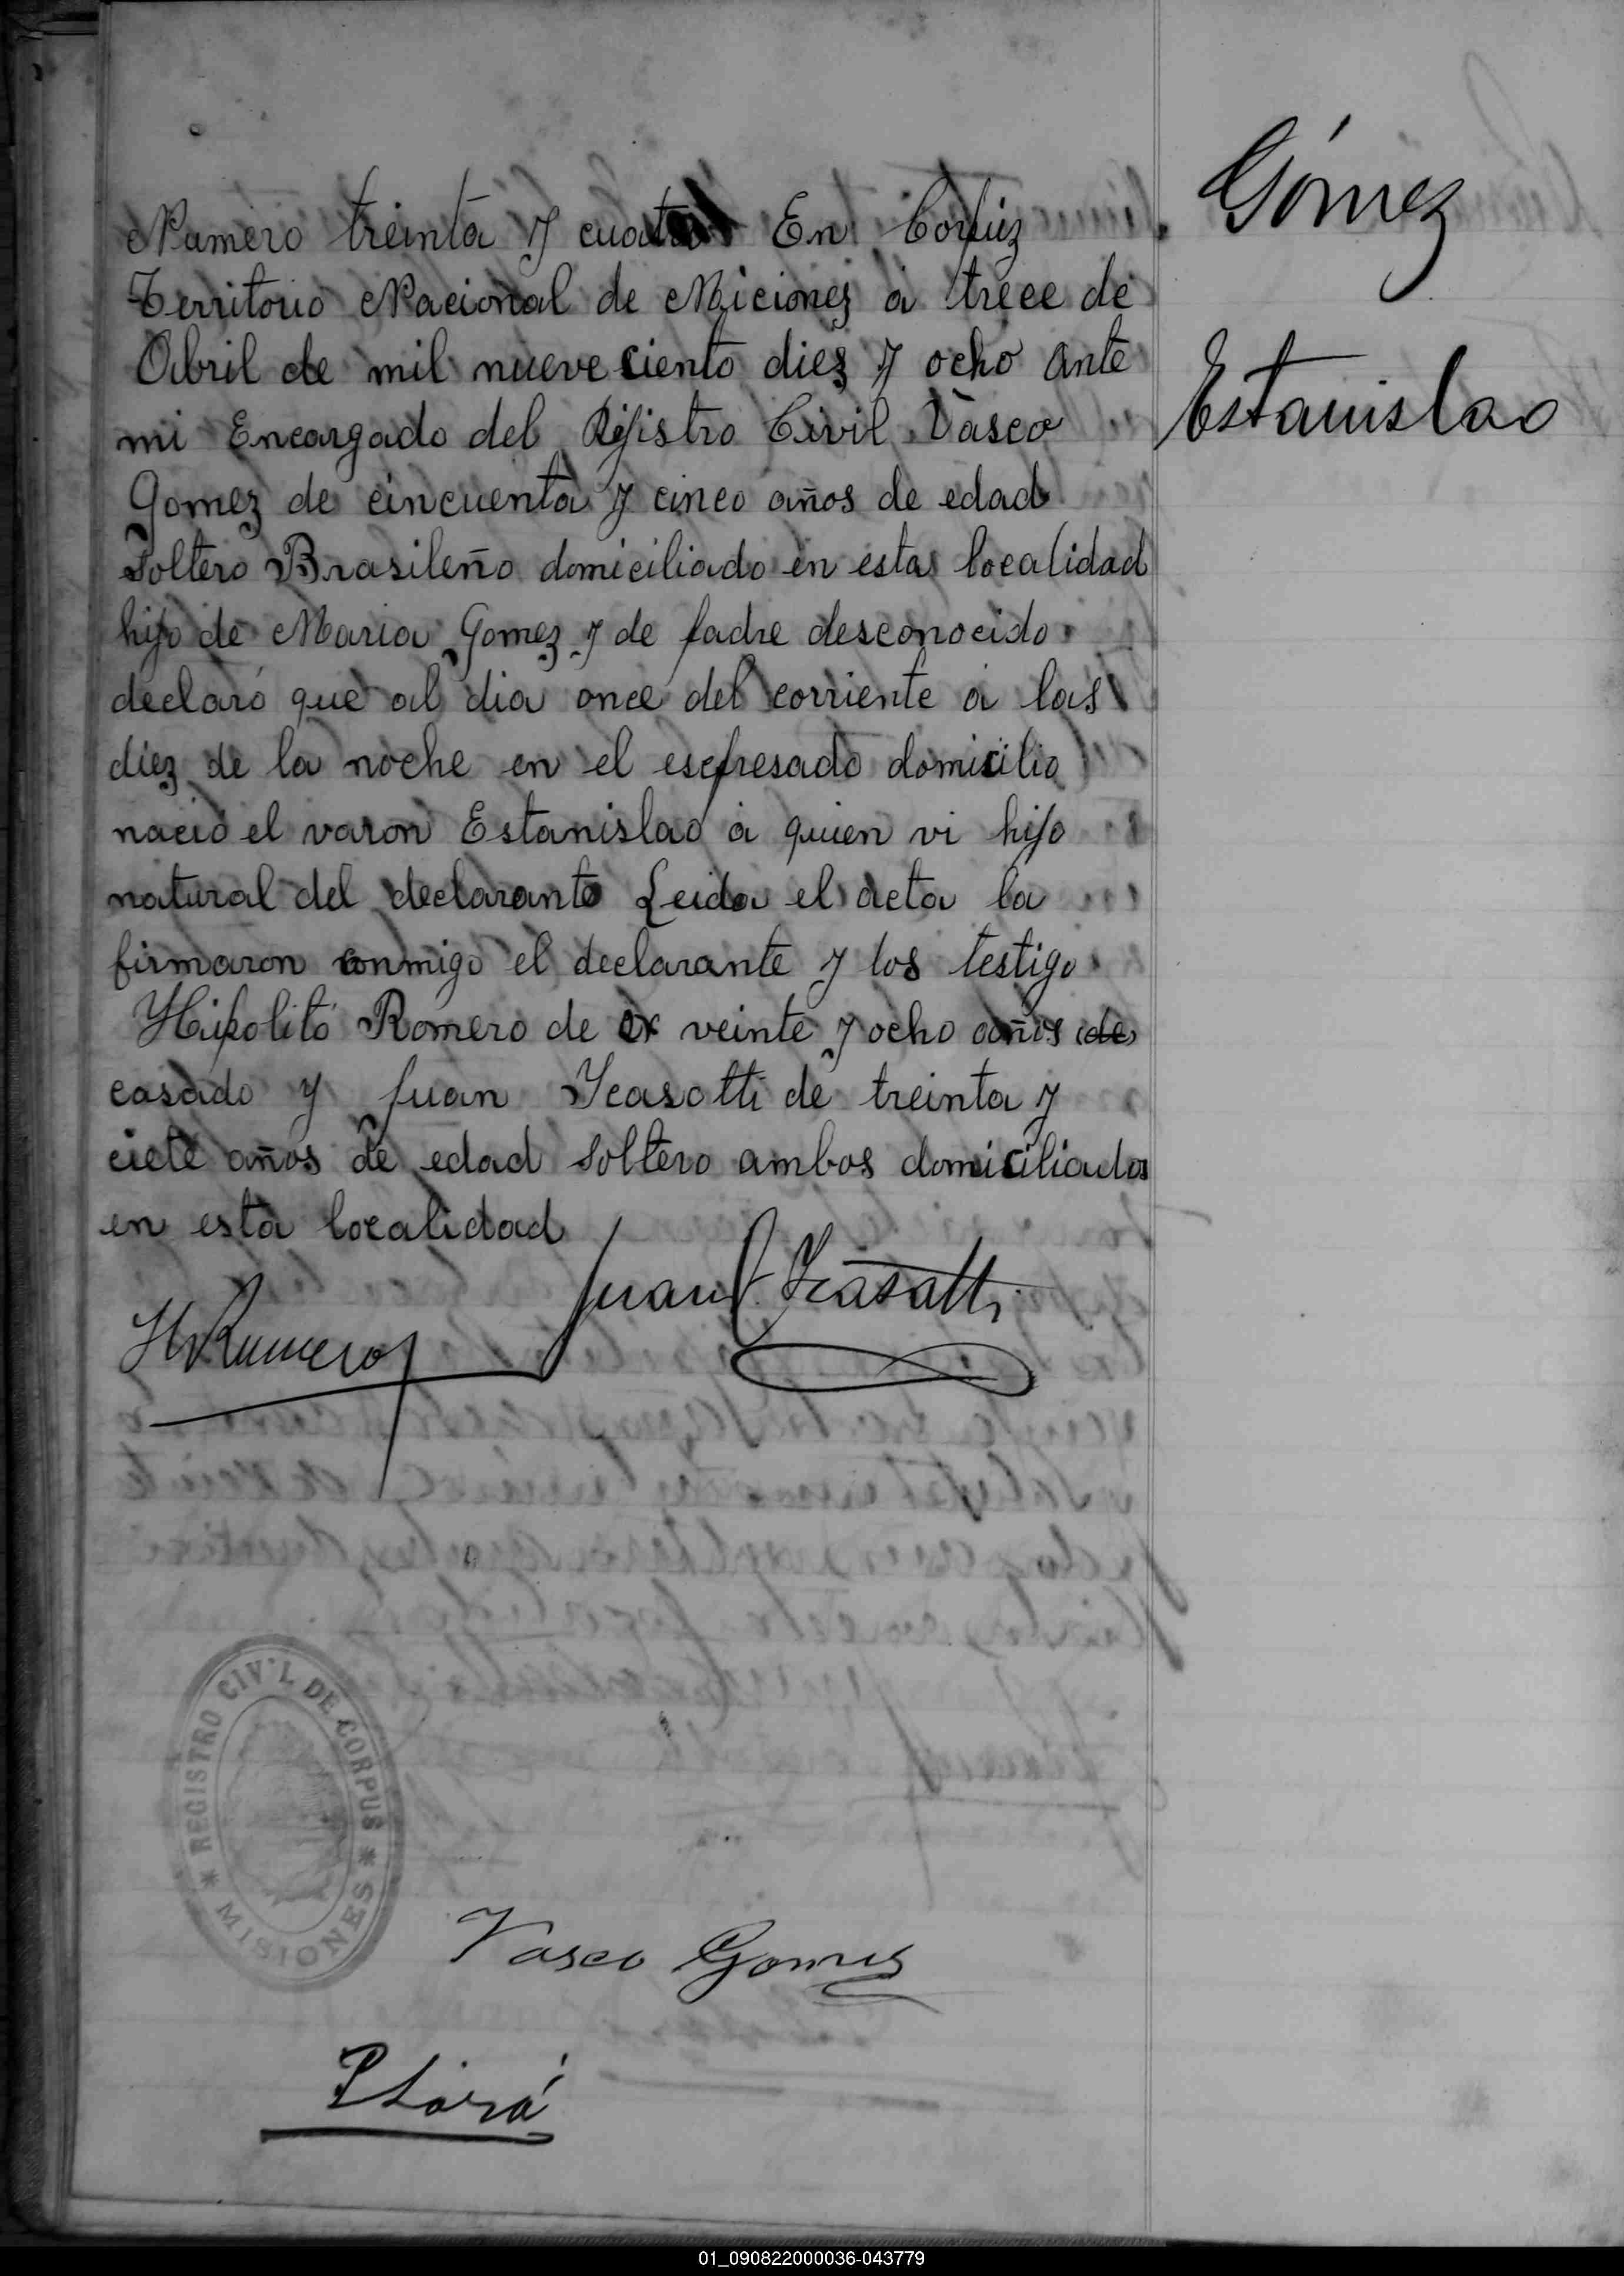 Numero treinta y cuatro En Corpuz
Territorio Nacional de Miciones a trece de
Abril de mil nueve ciento diez y ocho ante
mi Encargado del Rijistro Civil Vasco
Gomez de cincuenta y cinco años de edad
soltero Brasileño domiciliado en esta localidad
hijo de Maria Gomez y de padre desconocido
declaró que al dia once del corriente a las
diez de la noche en el espresado domicilio
nació el varon Estanislao a quien vi hijo
natural del declarante Leida el acta la
firmaron conmigo el declarante y los testigo
Hipolito Romero de veinte y ocho años de
casado y Juan Icasatti de treinta y
ciete años de edad soltero ambos domiciliados
en esta localidad
Gómez
Estanislao
Juan Icasatti
H Rumero
REGISTRO CIVIL DE CORPUS
* MISIONES *
Vasco Gomes
01_090822000036-043779